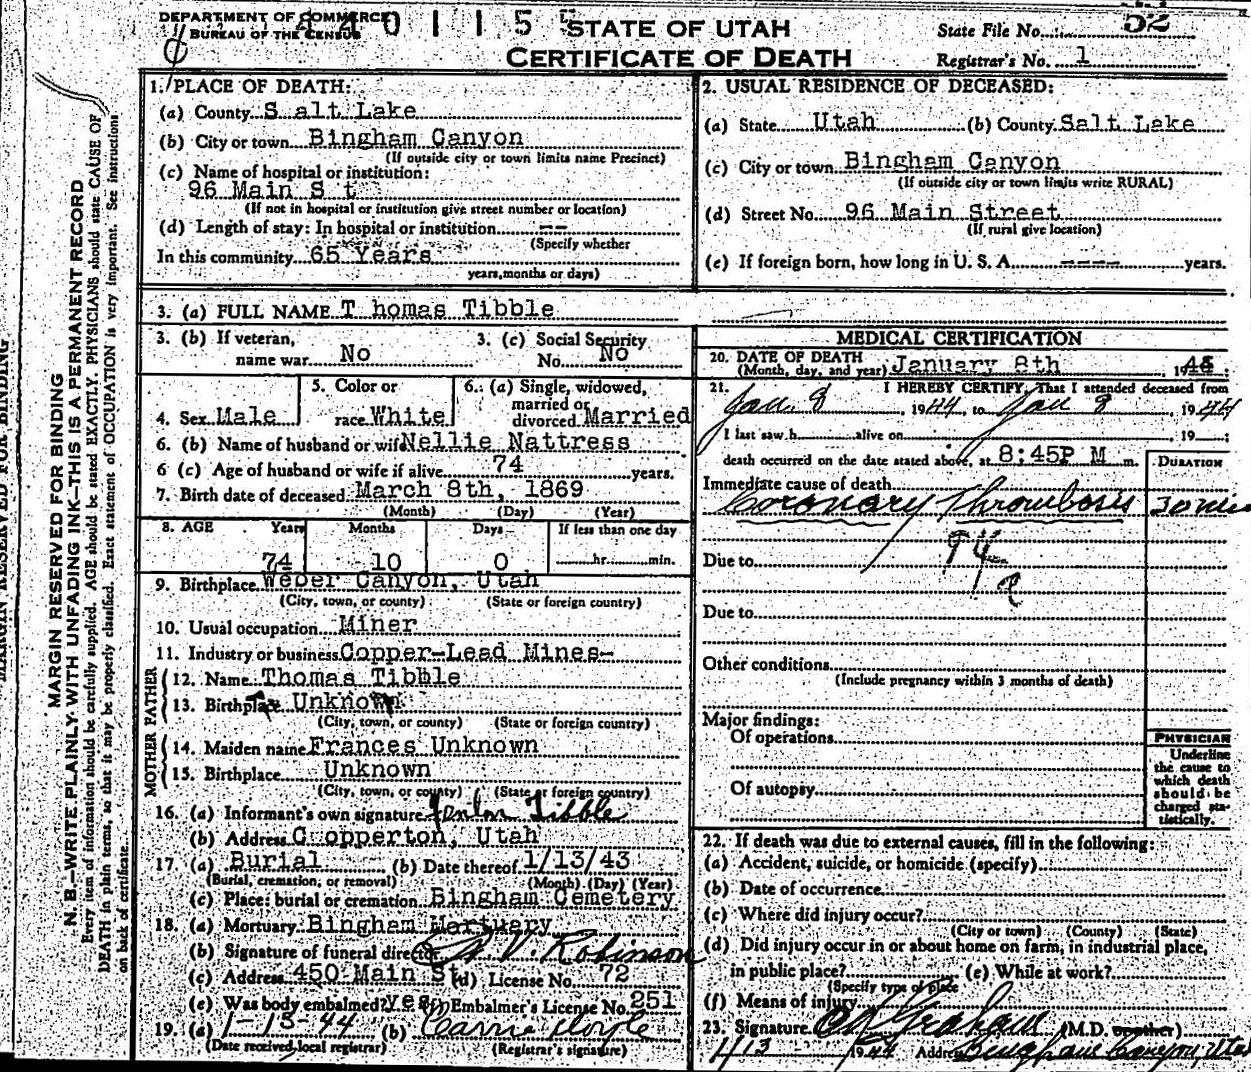 DEPARTMENT OF COMMERCE
BUREAU OF THE CENSUS
440115
STATE OF UTAH
CERTIFICATE OF DEATH
State File No. 52
Registrar's No. 1
MARGIN RESERVED FOR BINDING
N. B.—WRITE PLAINLY WITH UNFADING INK—THIS IS A PERMANENT RECORD
Every item of information should be carefully supplied. AGE should be stated EXACTLY. PHYSICIANS should state CAUSE OF
DEATH in plain terms, so that it may be properly classified. Exact statement of OCCUPATION is very important. See instructions
on back of certificate.
1. PLACE OF DEATH:
(a) County S alt Lake
(b) City or town Bingham Canyon
(If outside city or town limits name Precinct)
(c) Name of hospital or institution:
96 Main S t
(If not in hospital or institution give street number or location)
(d) Length of stay: In hospital or institution --
(Specify whether
In this community 65 Years
years, months or days)
2. USUAL RESIDENCE OF DECEASED:
(a) State Utah (b) County Salt Lake
(c) City or town Bingham Canyon
(If outside city or town limits write RURAL)
(d) Street No. 96 Main Street
(If rural give location)
(e) If foreign born, how long in U. S. A. ---- years.
3. (a) FULL NAME T homas Tibble
3. (b) If veteran,
name war No
3. (c) Social Security
No. No
4. Sex Male
5. Color or
race White
6. (a) Single, widowed,
married or
divorced Married
6. (b) Name of husband or wife Nellie Nattress
6 (c) Age of husband or wife if alive 74 years.
7. Birth date of deceased March 8th, 1869
(Month) (Day) (Year)
8. AGE Years Months Days If less than one day
74 10 0 hr. min.
9. Birthplace Weber Canyon, Utah
(City, town, or county) (State or foreign country)
10. Usual occupation Miner
11. Industry or business Copper-Lead Mines-
FATHER
12. Name Thomas Tibble
13. Birthplace Unknown
(City, town, or county) (State or foreign country)
MOTHER
14. Maiden name Frances Unknown
15. Birthplace Unknown
(City, town, or county) (State or foreign country)
16. (a) Informant's own signature Tibble
(b) Address Copperton, Utah
17 (a) Burial (b) Date thereof 1/13/43
(Burial, cremation, or removal) (Month) (Day) (Year)
(c) Place: burial or cremation Bingham Cemetery
18. (a) Mortuary Bingham Mortuary
(b) Signature of funeral director V. Robinson
(c) Address 450 Main St (d) License No. 72
(e) Was body embalmed? yes (f) Embalmer's License No. 251
19. (a) 1-13-44 (b) Carrie Doyle
(Date received local registrar) (Registrar's signature)
MEDICAL CERTIFICATION
20. DATE OF DEATH
(Month, day, and year) January 8th, 194
21. I HEREBY CERTIFY, That I attended deceased from
Jan. 8, 1944, to Jan 8, 1944
I last saw h alive on , 19 ;
death occurred on the date stated above, at 8:45P M m.
DURATION
Immediate cause of death
Coronary Thrombosis 30 min
94
a
Due to
Due to
Other conditions
(Include pregnancy within 3 months of death)
Major findings:
Of operations
Of autopsy
PHYSICIAN
Underline
the cause to
which death
should be
charged sta-
tistically.
22. If death was due to external causes, fill in the following:
(a) Accident, suicide, or homicide (specify)
(b) Date of occurrence
(c) Where did injury occur?
(City or town) (County) (State)
(d) Did injury occur in or about home on farm, in industrial place,
in public place? (e) While at work?
(Specify type of place
(f) Means of injury
23. Signature Graham (M.D. or other)
1/13 1944 Address Bingham Canyon, Utah